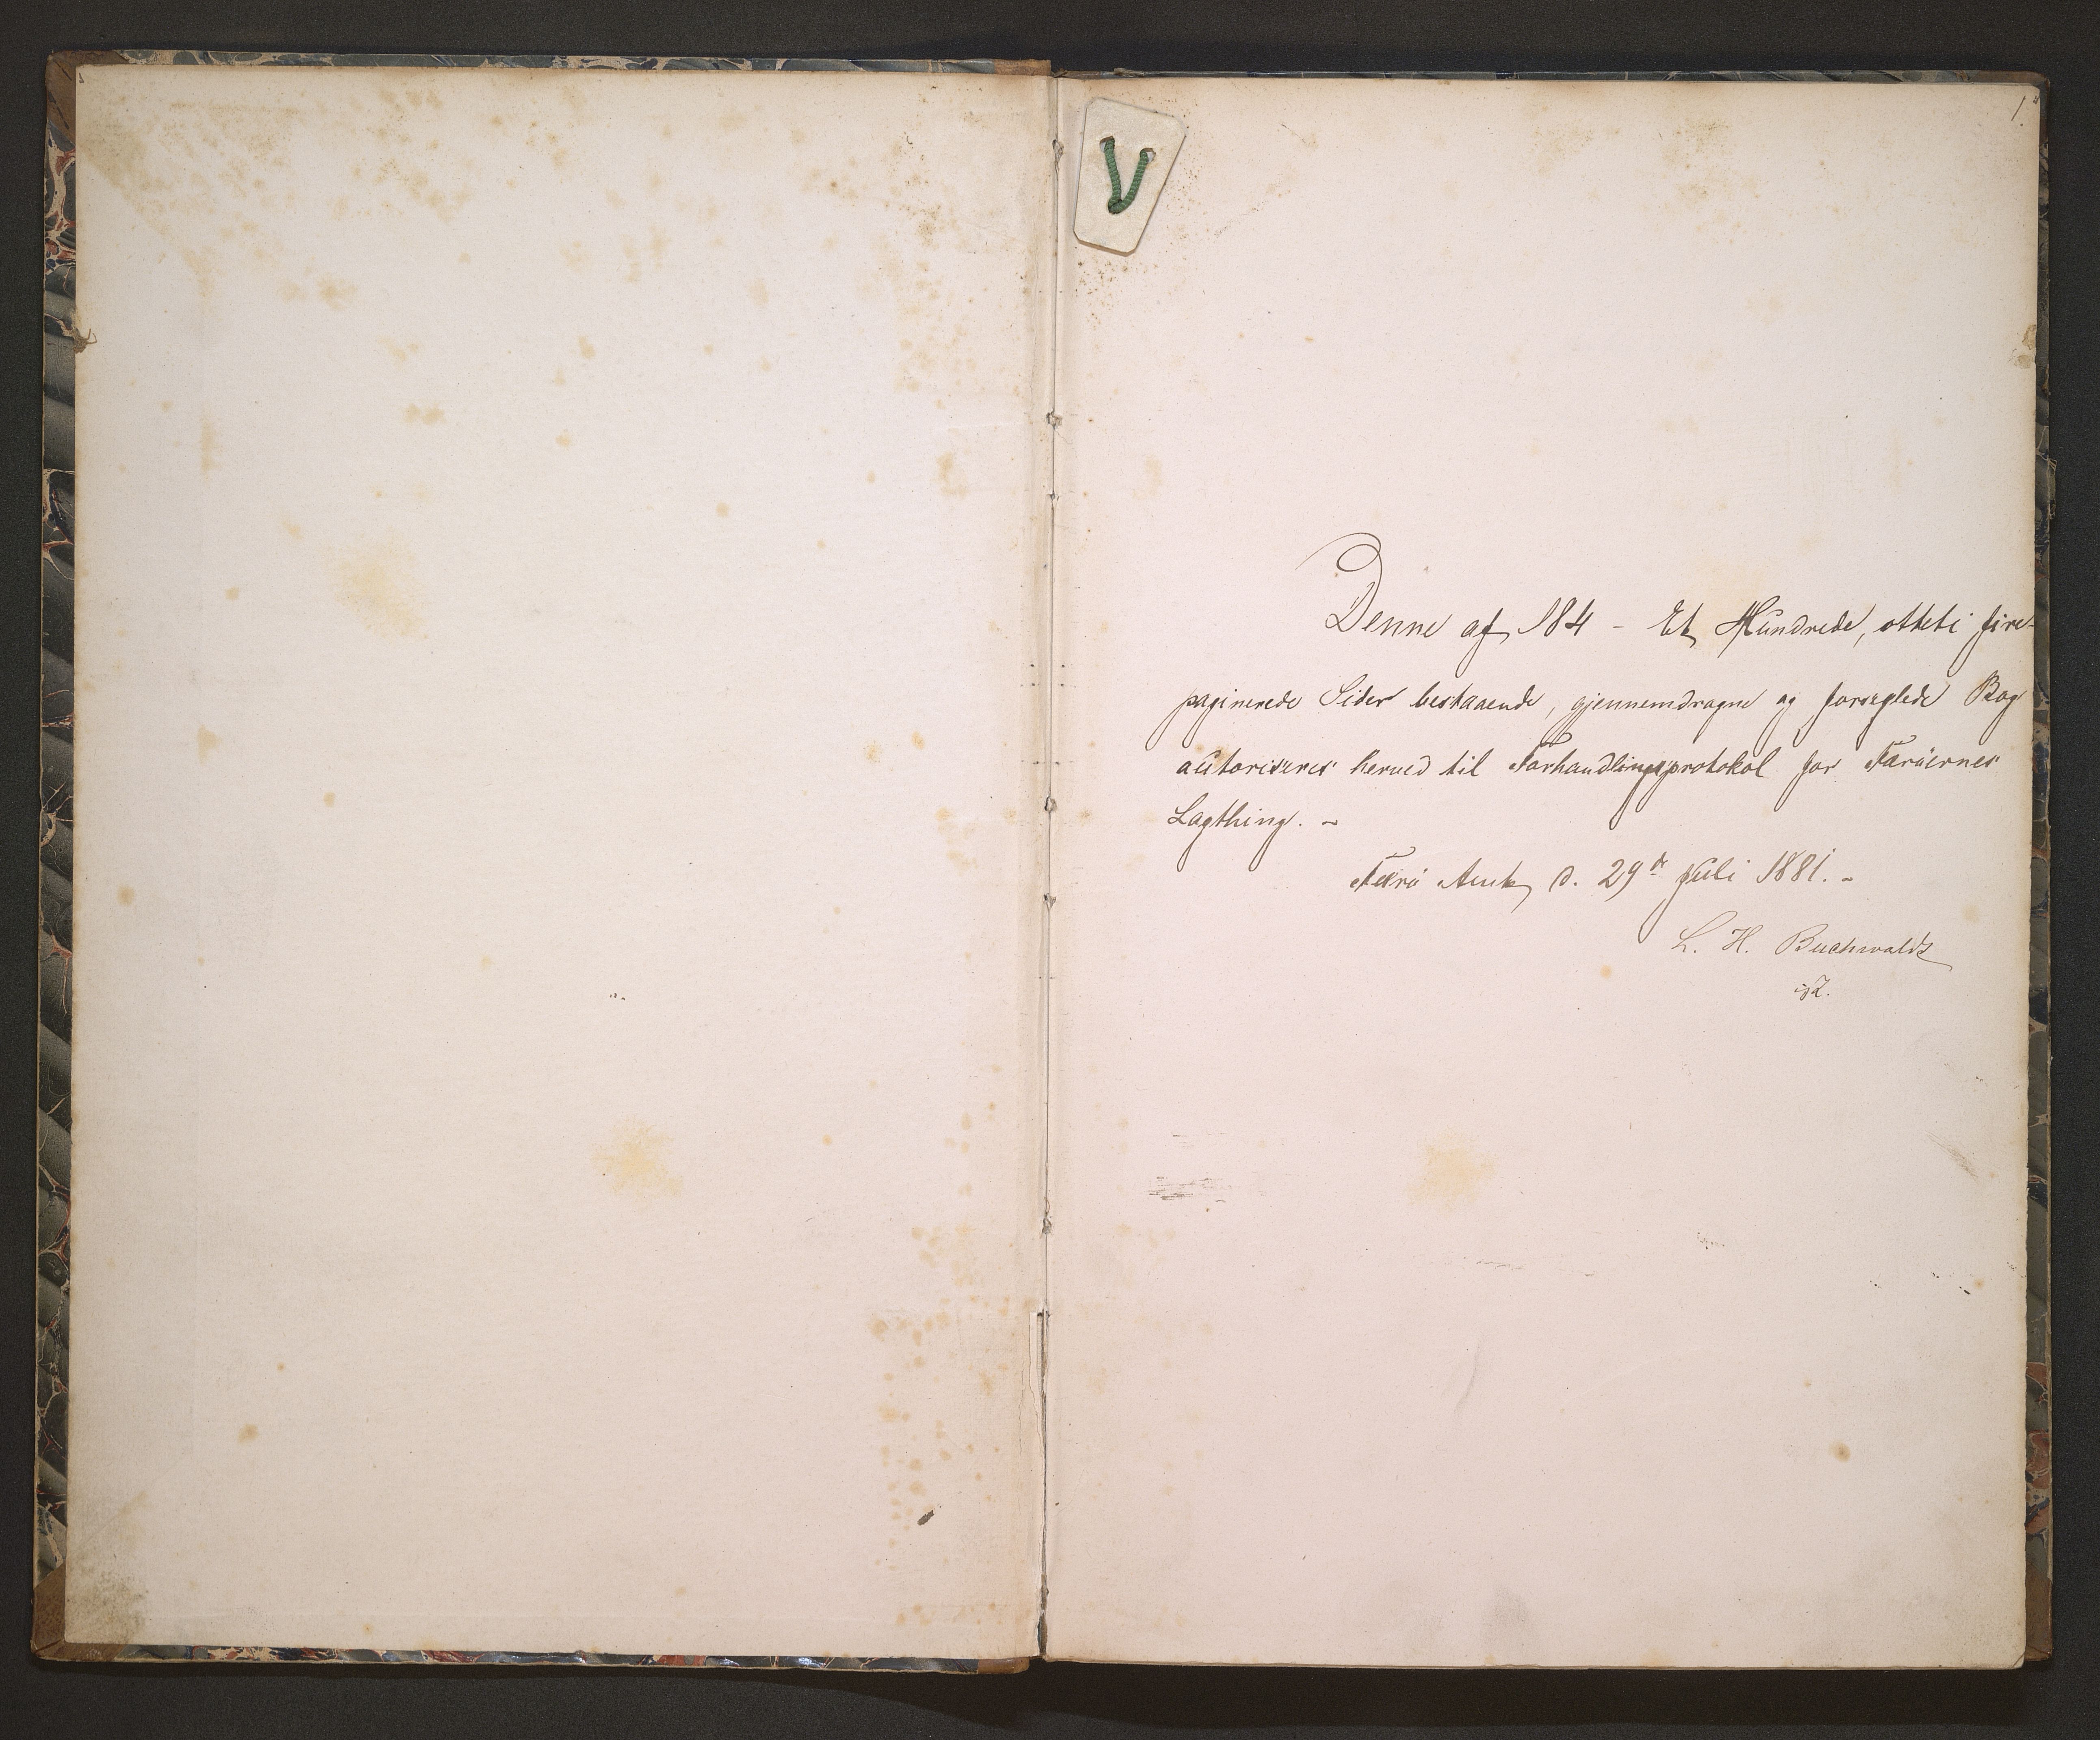 1.
Denne af 184 - Et Hundrede, otteti fire -
paginerede Sider bestaaende, gjennemdragne og forseglede Bog
autoriseres herved til Forhandlingsprotokol for Færöernes
Lagthing. -
Færö Amt, d. 29de Juli 1881. -
L. H. Buchwaldt